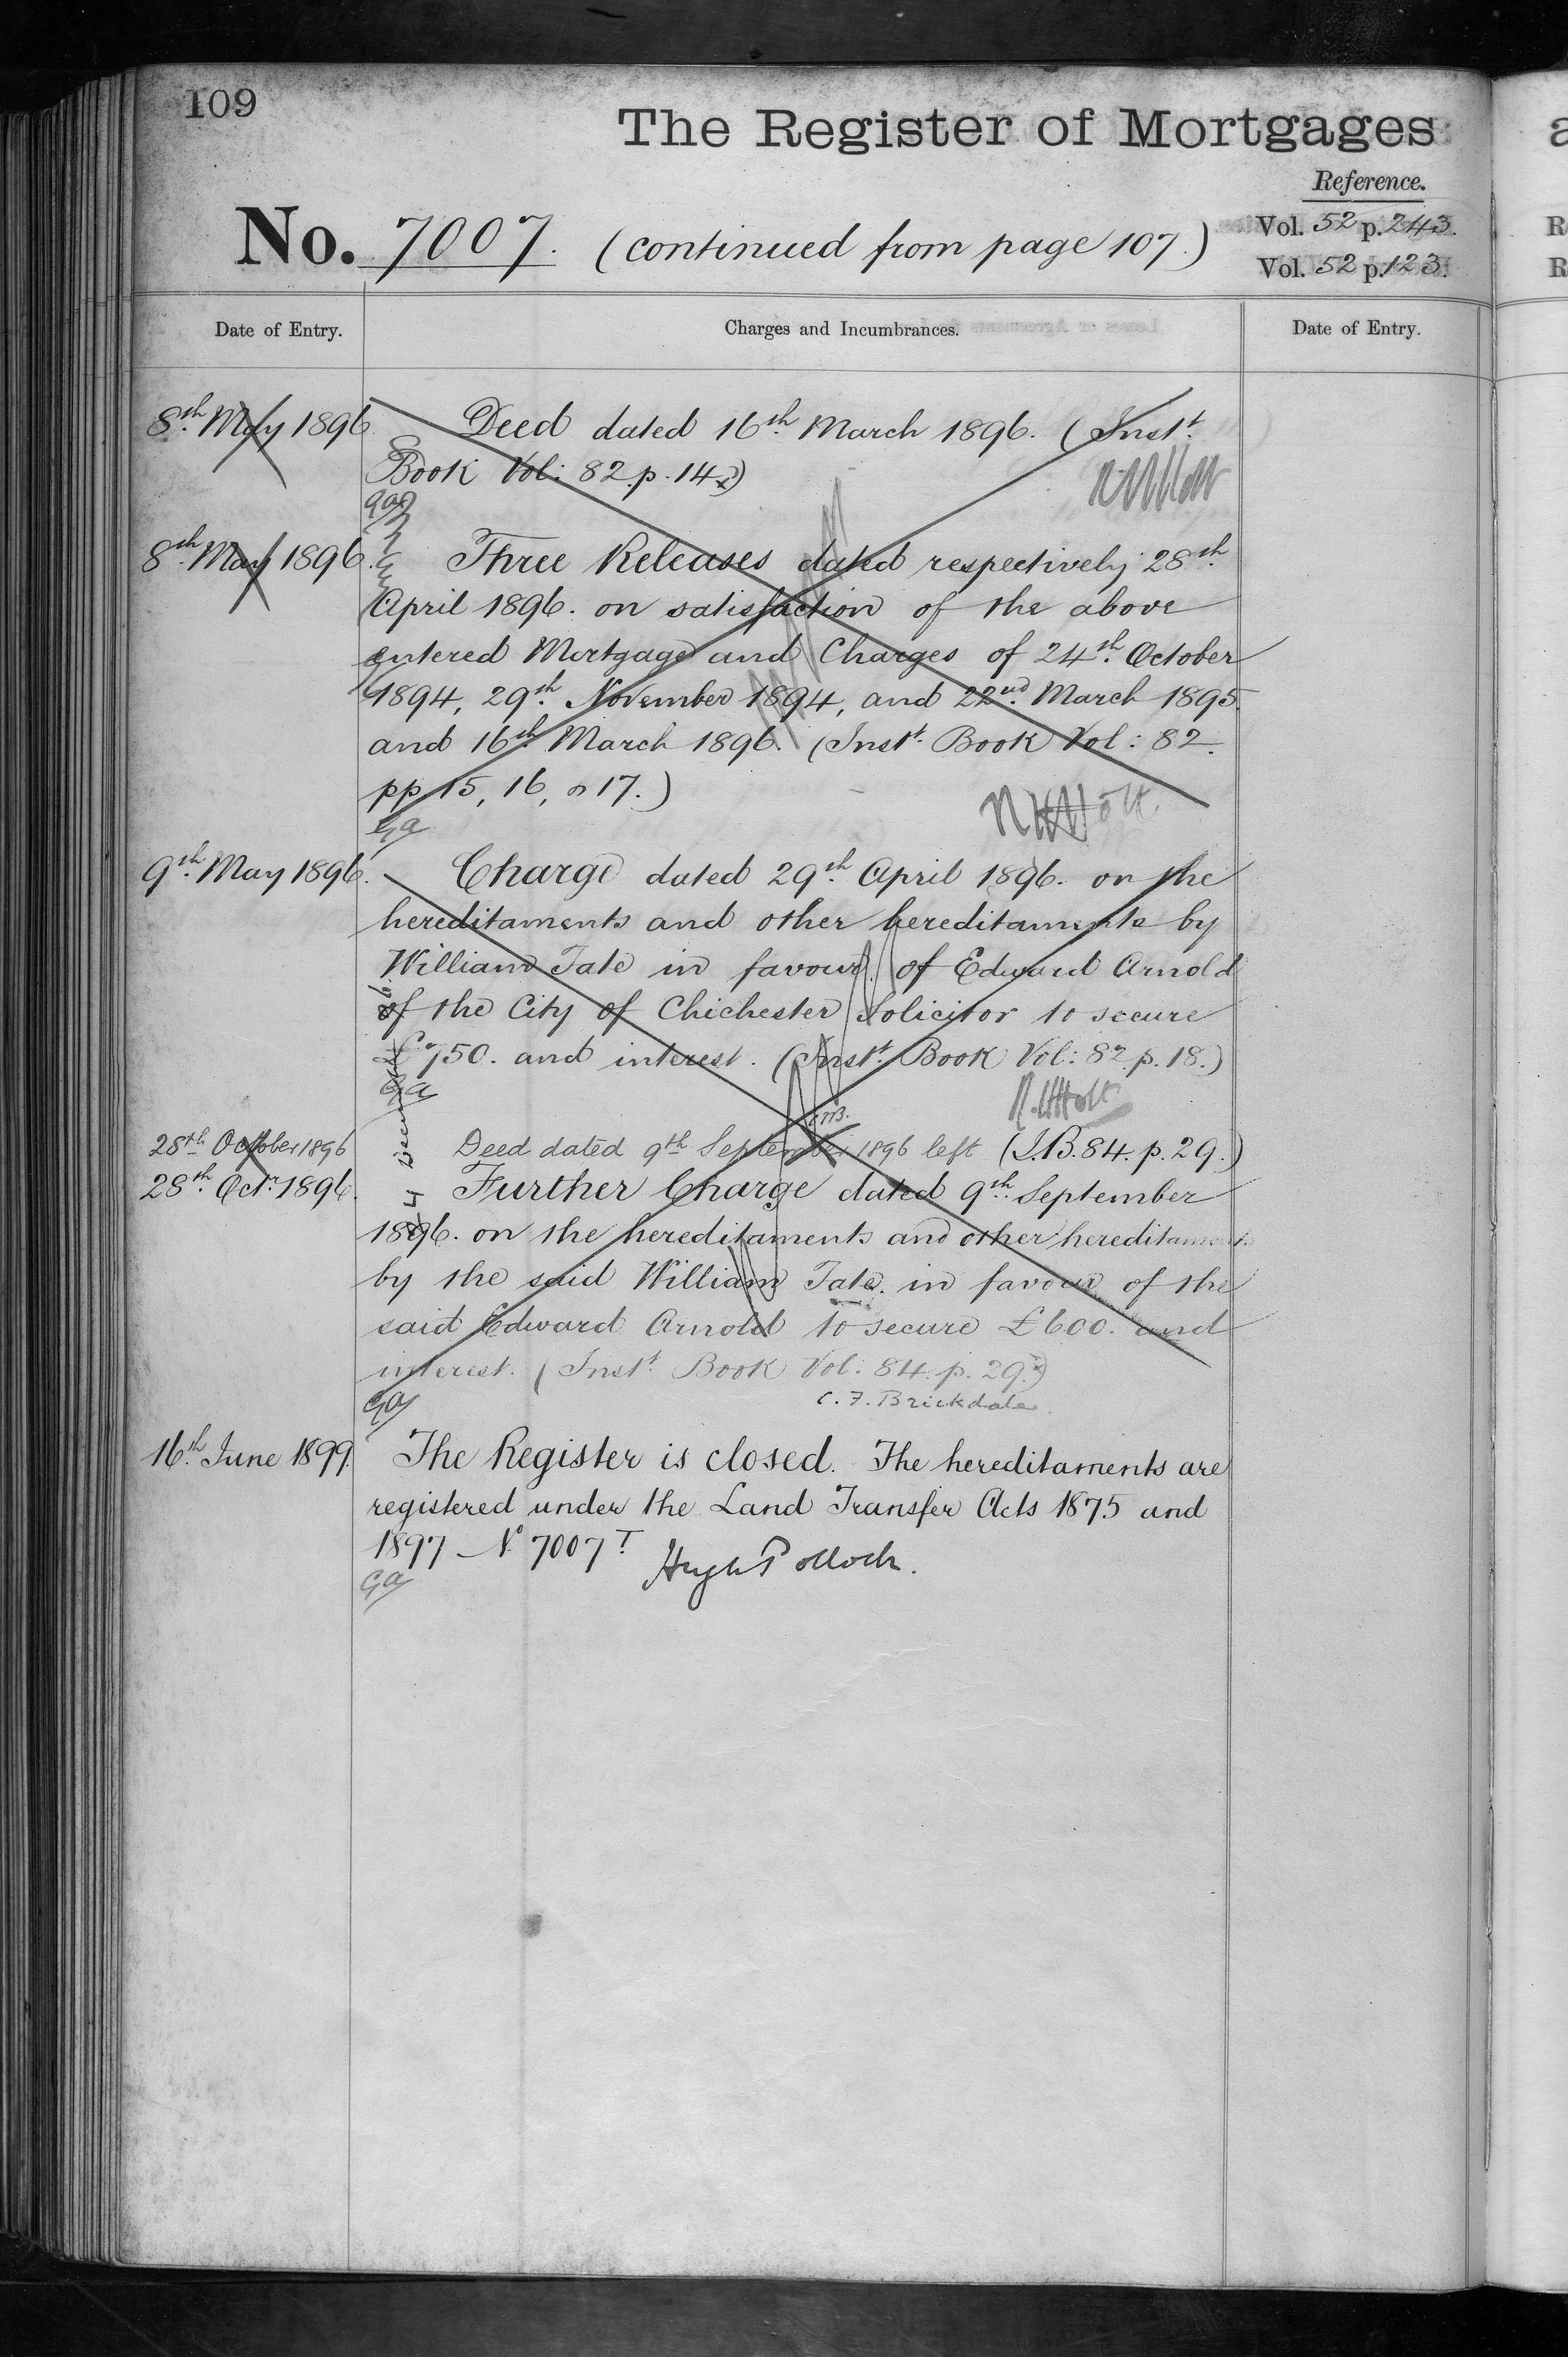 109
The Register of Mortgages
Reference.
No. 7007. (continued from page 107.)
Vol. 52 p. 243.
Vol. 52 p. 123.
Date of Entry.
Charges and Incumbrances.
Date of Entry.
8th May 1896
Deed dated 16th March 1896. (Instt.
Book Vol: 82. p. 14.)
8th May 1896.
Three Releases dated respectively 28th
April 1896. on satisfaction of the above
entered Mortgage and Charges of 24th October
1894, 29th November 1894, and 22nd March 1895
and 16th March 1896. (Instt. Book Vol: 82.
pp 15, 16, & 17.)
R H Holt
9th May 1896.
Charge dated 29th April 1896. on the
hereditaments and other hereditaments by
William Tate in favour of Edward Arnold
of the City of Chichester Solicitor to secure
£750. and interest. (Instt. Book Vol: 82 p. 18.)
GA
R. H Holt
28th October 1896
Deed dated 9th September 1896 left (I.B. 84. p. 29.)
28th Octr. 1896.
Further Charge dated 9th September
1896. on the hereditaments and other hereditaments
by the said William Tate. in favour of the
said Edward Arnold to secure £600. and
interest. (Instt. Book Vol: 84. p. 29.)
GA
C. F. Brickdale
16th June 1899.
The Register is closed. The hereditaments are
registered under the Land Transfer Acts 1875 and
1897 No 7007 T
Hugh Pollock.
GA
a
R
R